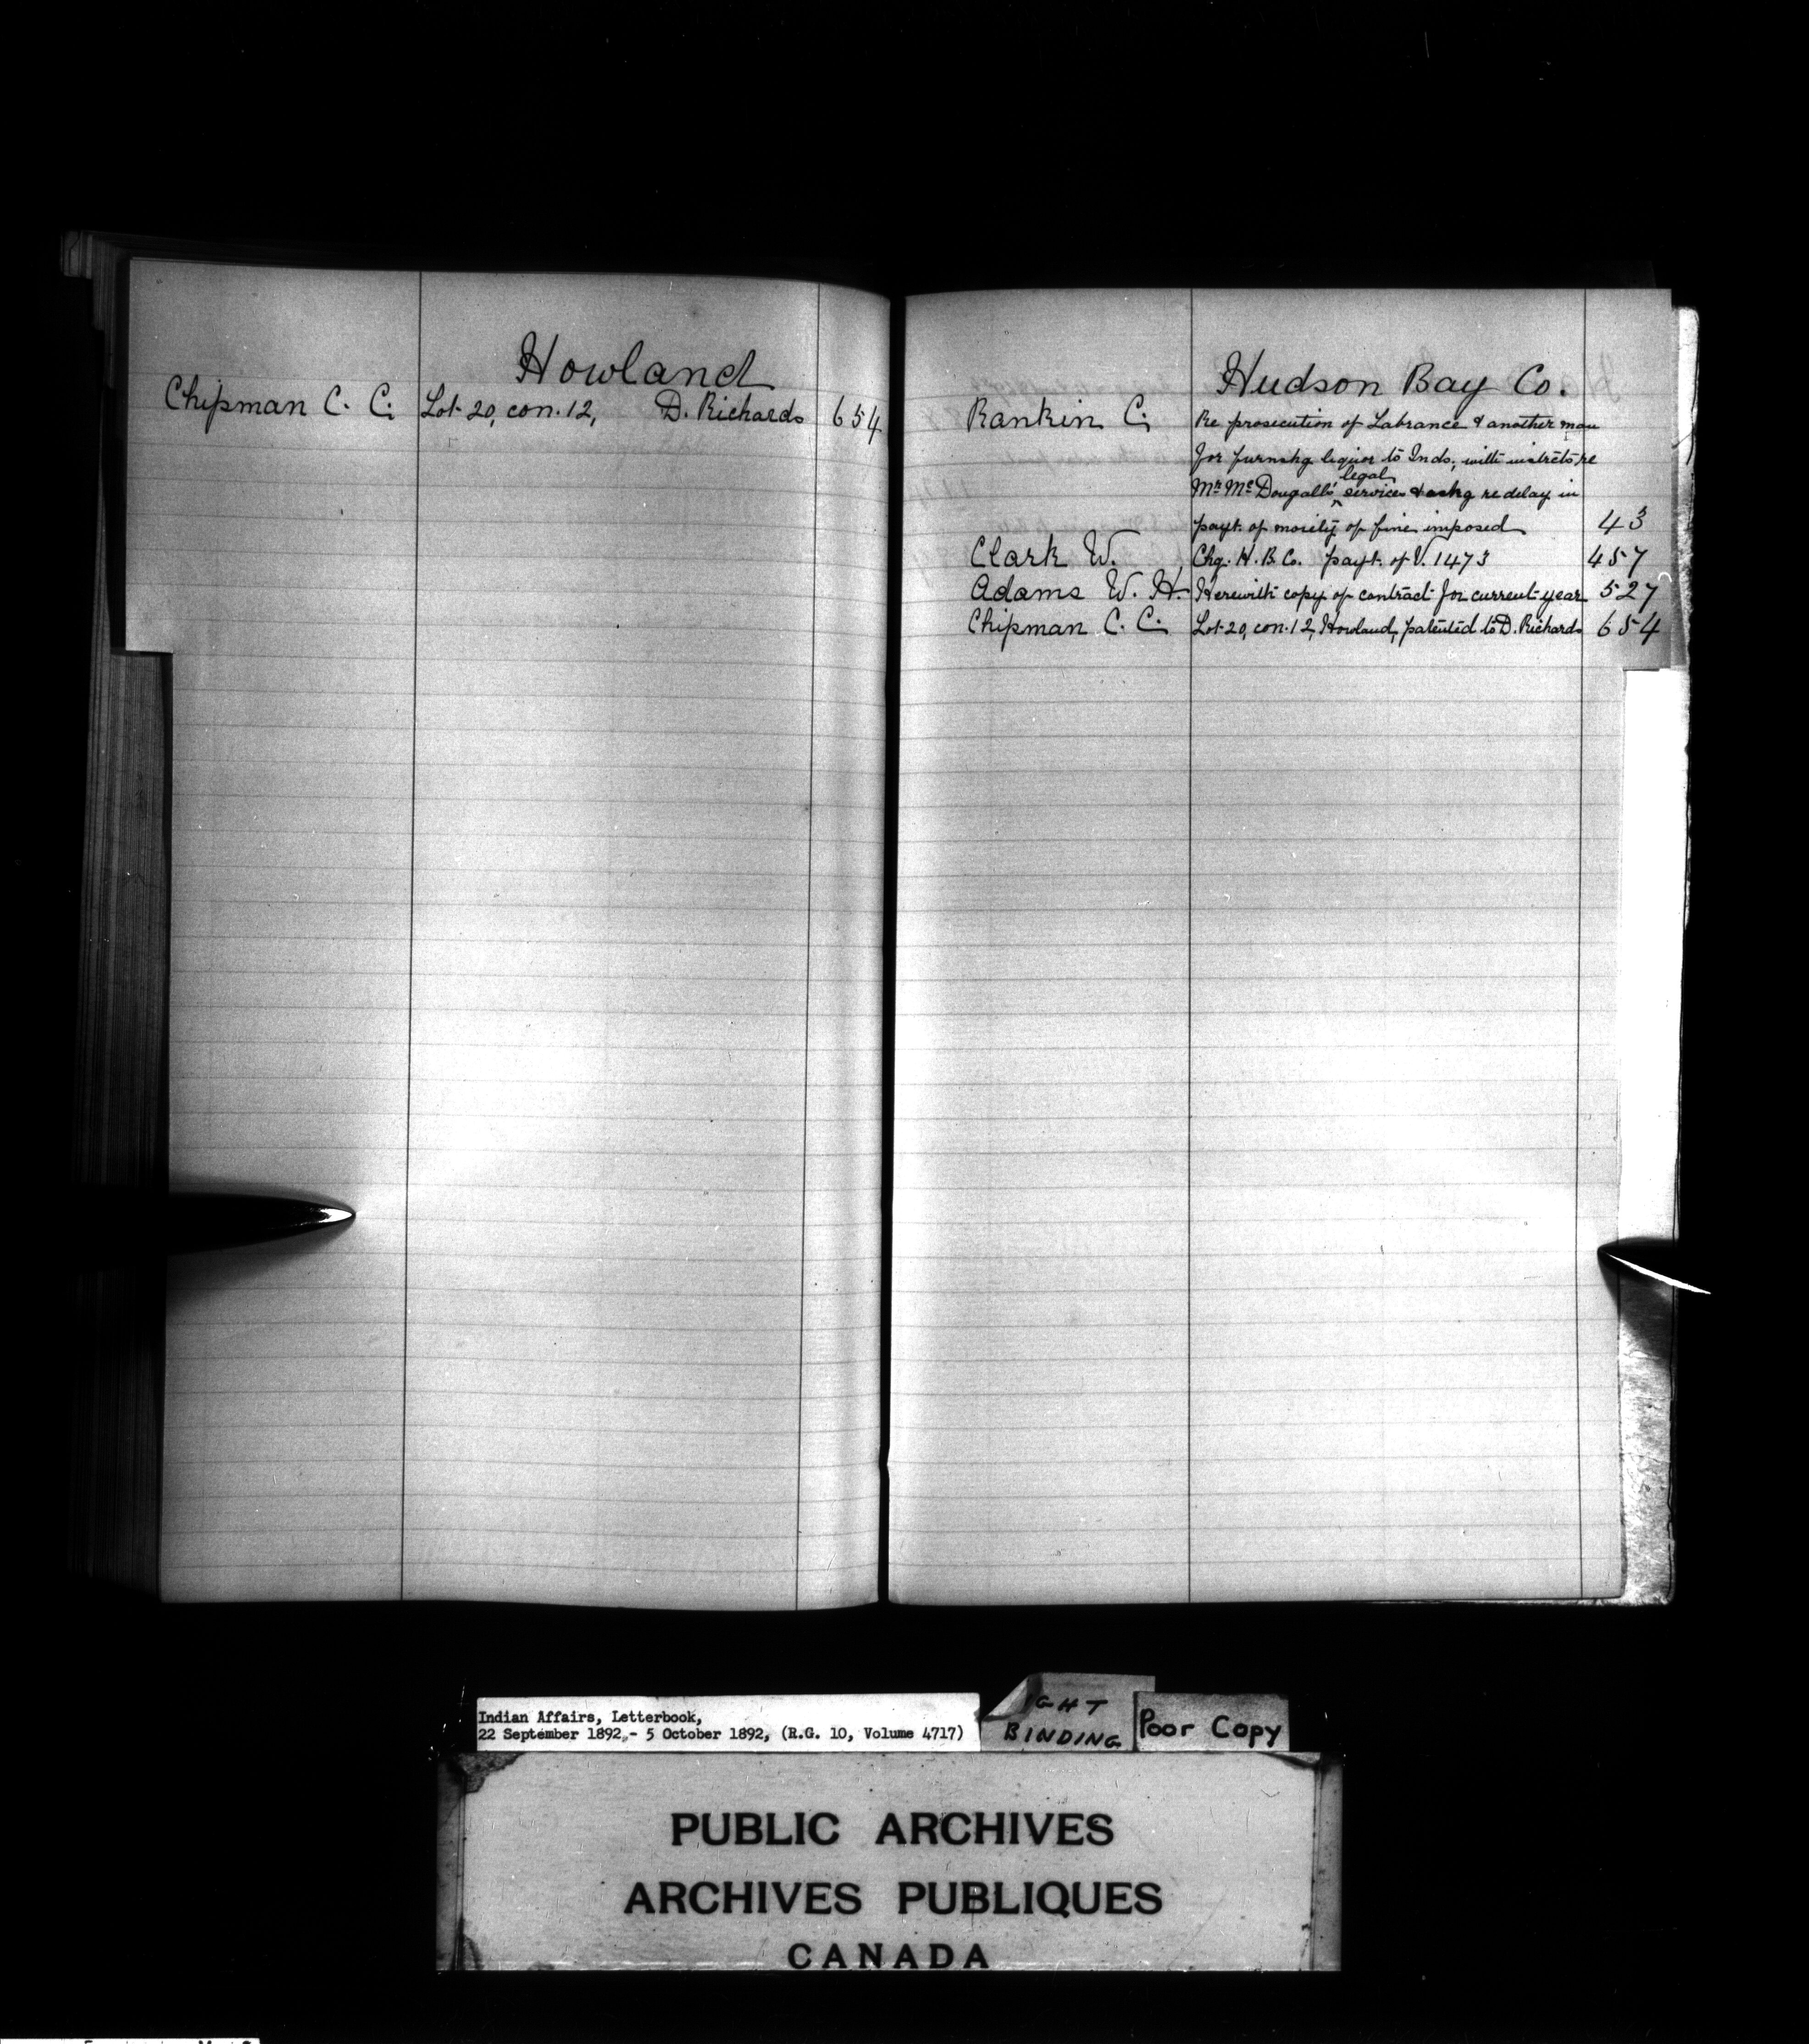 Howland
Chipman C. C. Lot 20, con. 12, D. Richards 654
Hudson Bay Co.
Rankin C. Re prosecution of Labrance & another man
for furnshg liquor to Inds, with instrcts re
legal
Mr. McDougall's services & askg re delay in
payt. of moiety of fine imposed 43
Clark W. Chq. H. B. Co. payt. of V. 1473 457
Adams W. H. Herewith copy of contract for current year 527
Chipman C. C. Lot 20, con. 12, Howland, patented to D. Richards 654
Indian Affairs, Letterbook,
22 September 1892 - 5 October 1892, (R.G. 10, Volume 4717)
IGHT
BINDING
Poor Copy
PUBLIC ARCHIVES
ARCHIVES PUBLIQUES
CANADA